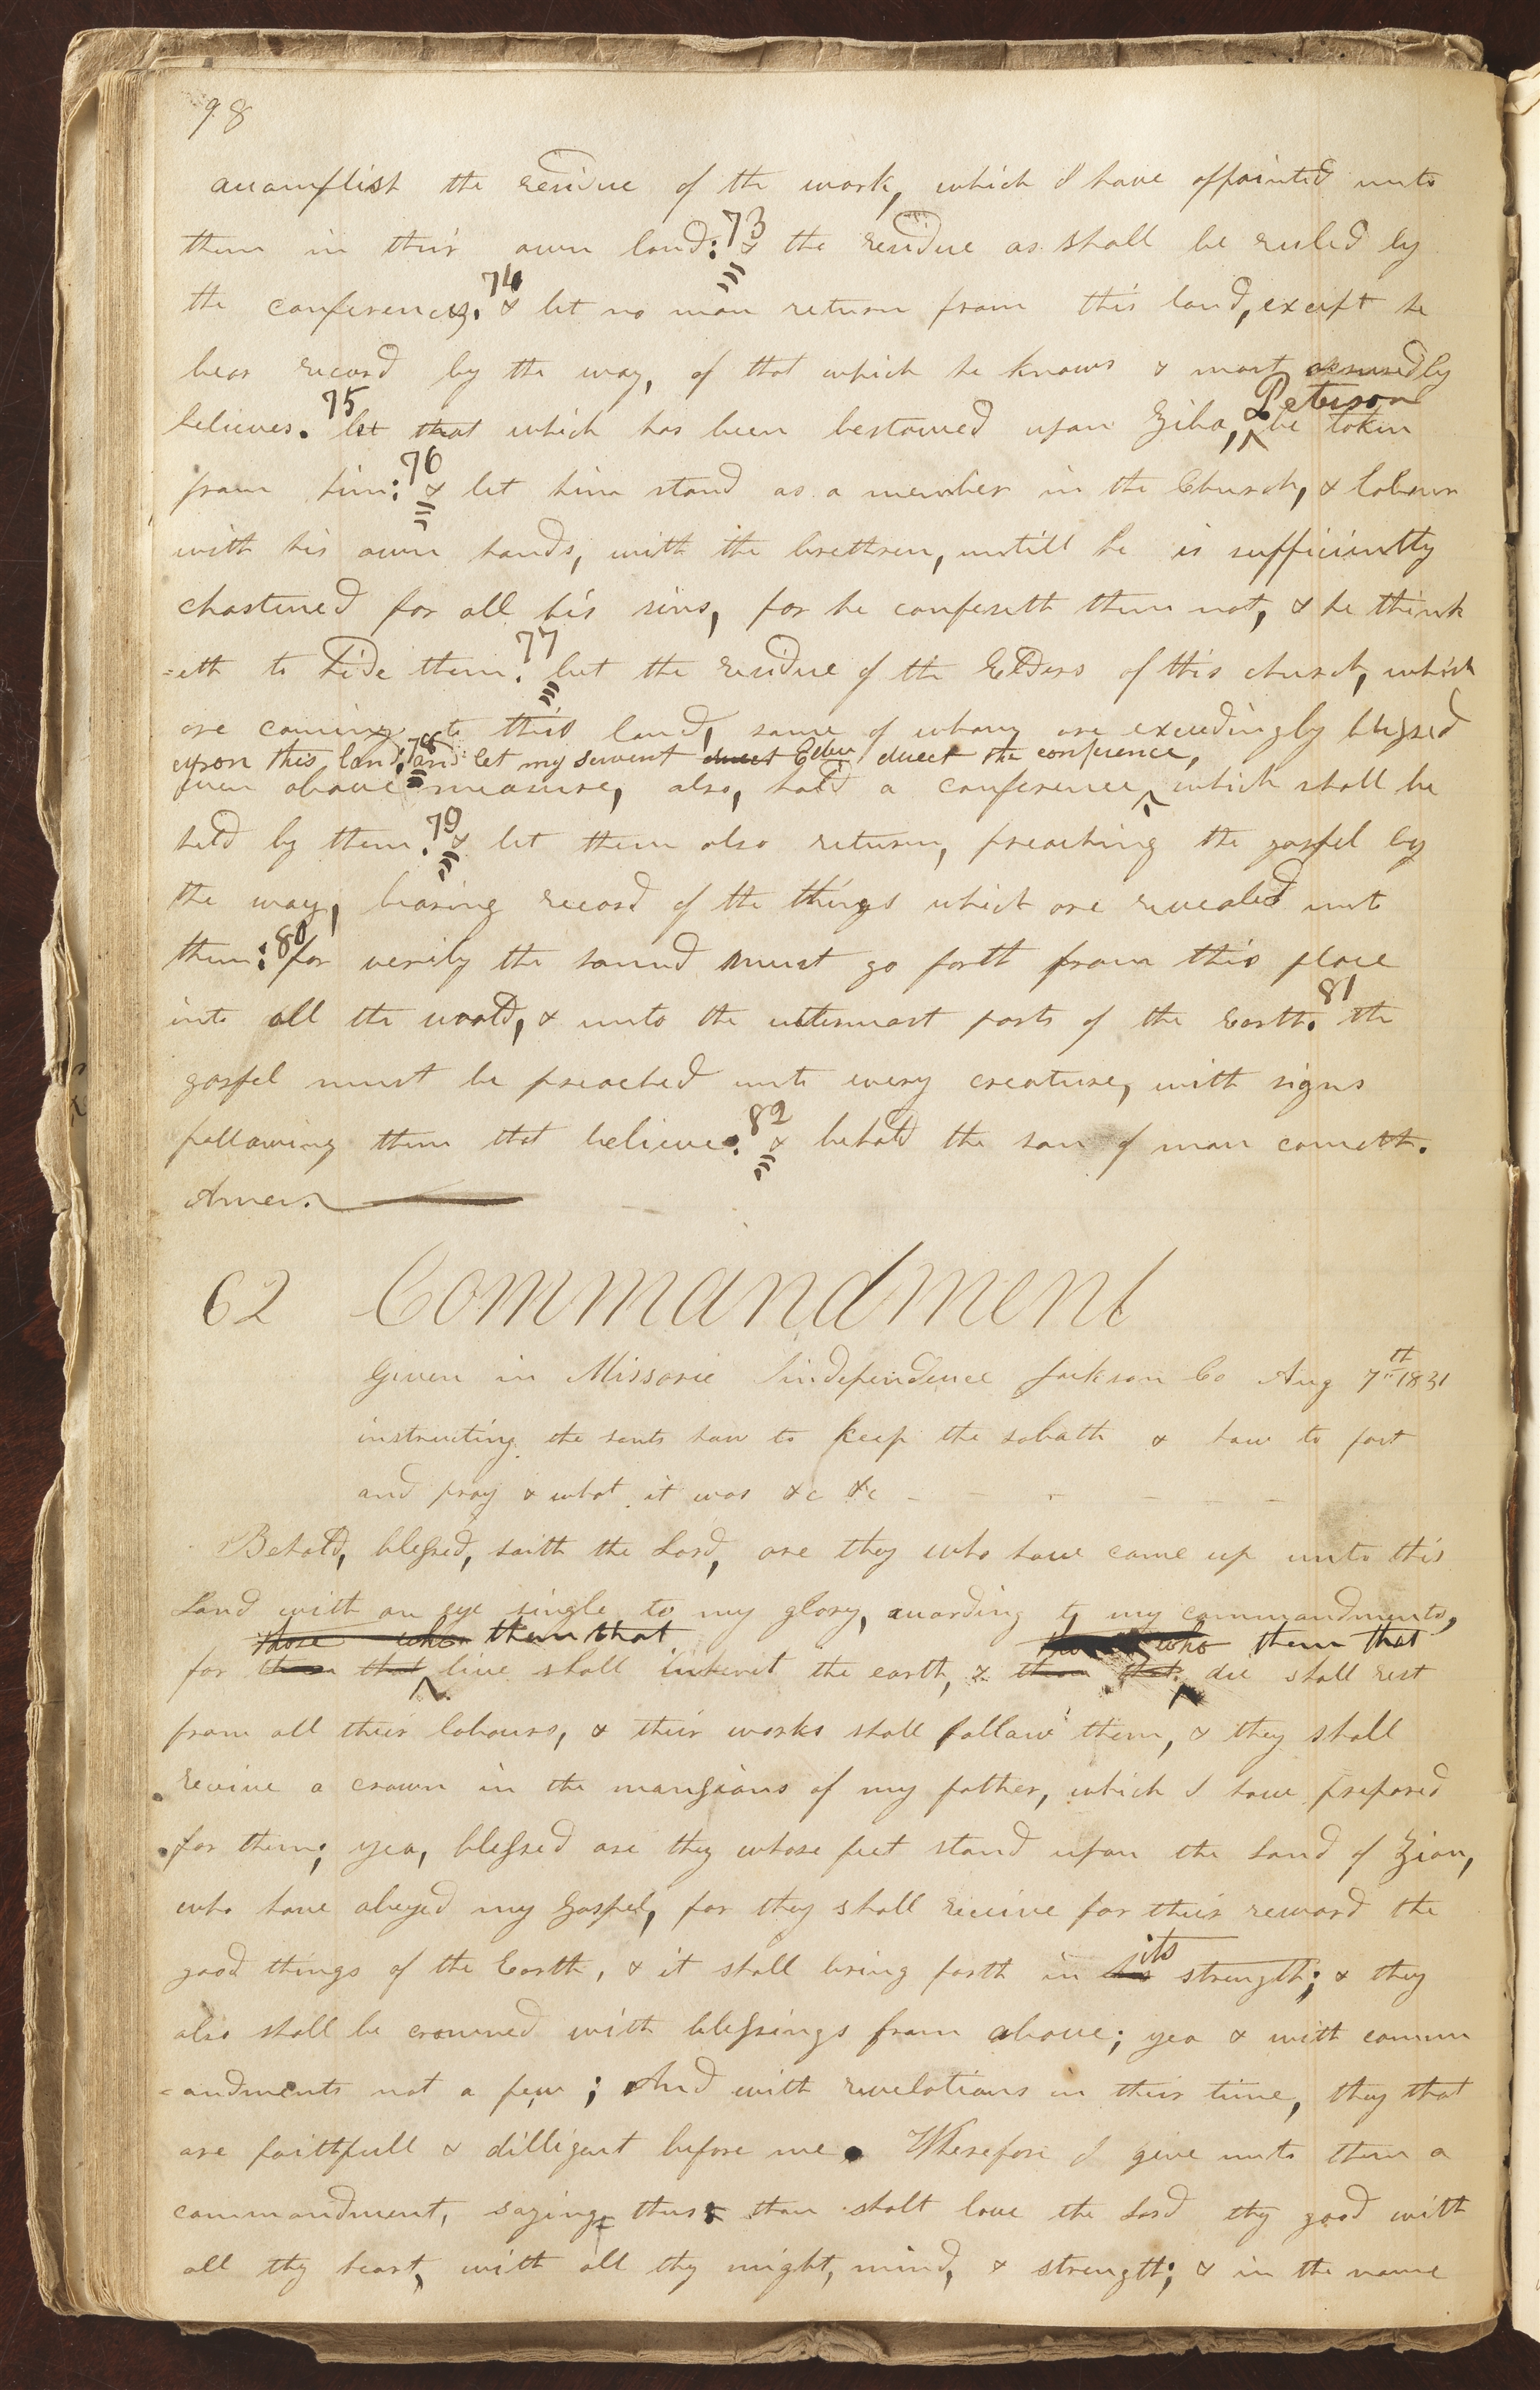 98
accomplish the residue of the work, which I have appointed unto
them in their own land: 73 & the residue as shall be ruled by
the conferences. 74 & let no man return from this land, except he
bear record by the way, of that which he knows & most assuredly
believes. 75 let that which has been bestowed upon Ziba, Peterson be taken
from him: 76 & let him stand as a member in the Church, & labour
with his own hands, with the brethren, untill he is sufficiently
chastened for all his sins, for he confeseth them not, & he think
=eth to hide them. 77 let the residue of the Elders of this church, which
are coming to this land, some of whom are exceedingly blessed
upon this land: 78 and let my servent direct Edw direct the conference,
even above measure, also, hold a conference which shall be
held by them. 79 & let them also return, preaching the gospel by
the way, bearing record of the things which are revealed unto
them: 80 for verily the sound must go forth from this place
into all the world, & unto the uttermost parts of the Earth. 81 the
gospel must be preached unto every creature, with signs
following them that believe. 82 & behold the son of man cometh.
Amen.
62 Commandment
Given in Missorie Independence Jackson Co Aug 7th 1831
instructing the sants how to keep the sabath & how to fast
and pray & what it was &c &c - - - - - -
Behold, blessed, saith the Lord, are they who have come up unto this
Land with an eye single to my glory, according to my commandments,
those who them that who them that
for them that live shall inherit the earth, & them that die shall rest
from all their labours, & their works shall follow them, & they shall
receive a crown in the mansions of my father, which I have prepared
for them; yea, blessed are they whose feet stand upon the Land of Zion,
who have obeyed my Gospel, for they shall receive for their reward the
its
good things of the Earth, & it shall bring forth in his strength; & they
also shall be crowned with blessings from above; yea & with comm
=andments not a few; And with revelations in their time, they that
are faithfull & dilligent before me. Wherefore I give unto them a
commandment, saying thus: thou shalt love the Lord thy good with
all thy heart, with all thy might, mind, & strength; & in the name